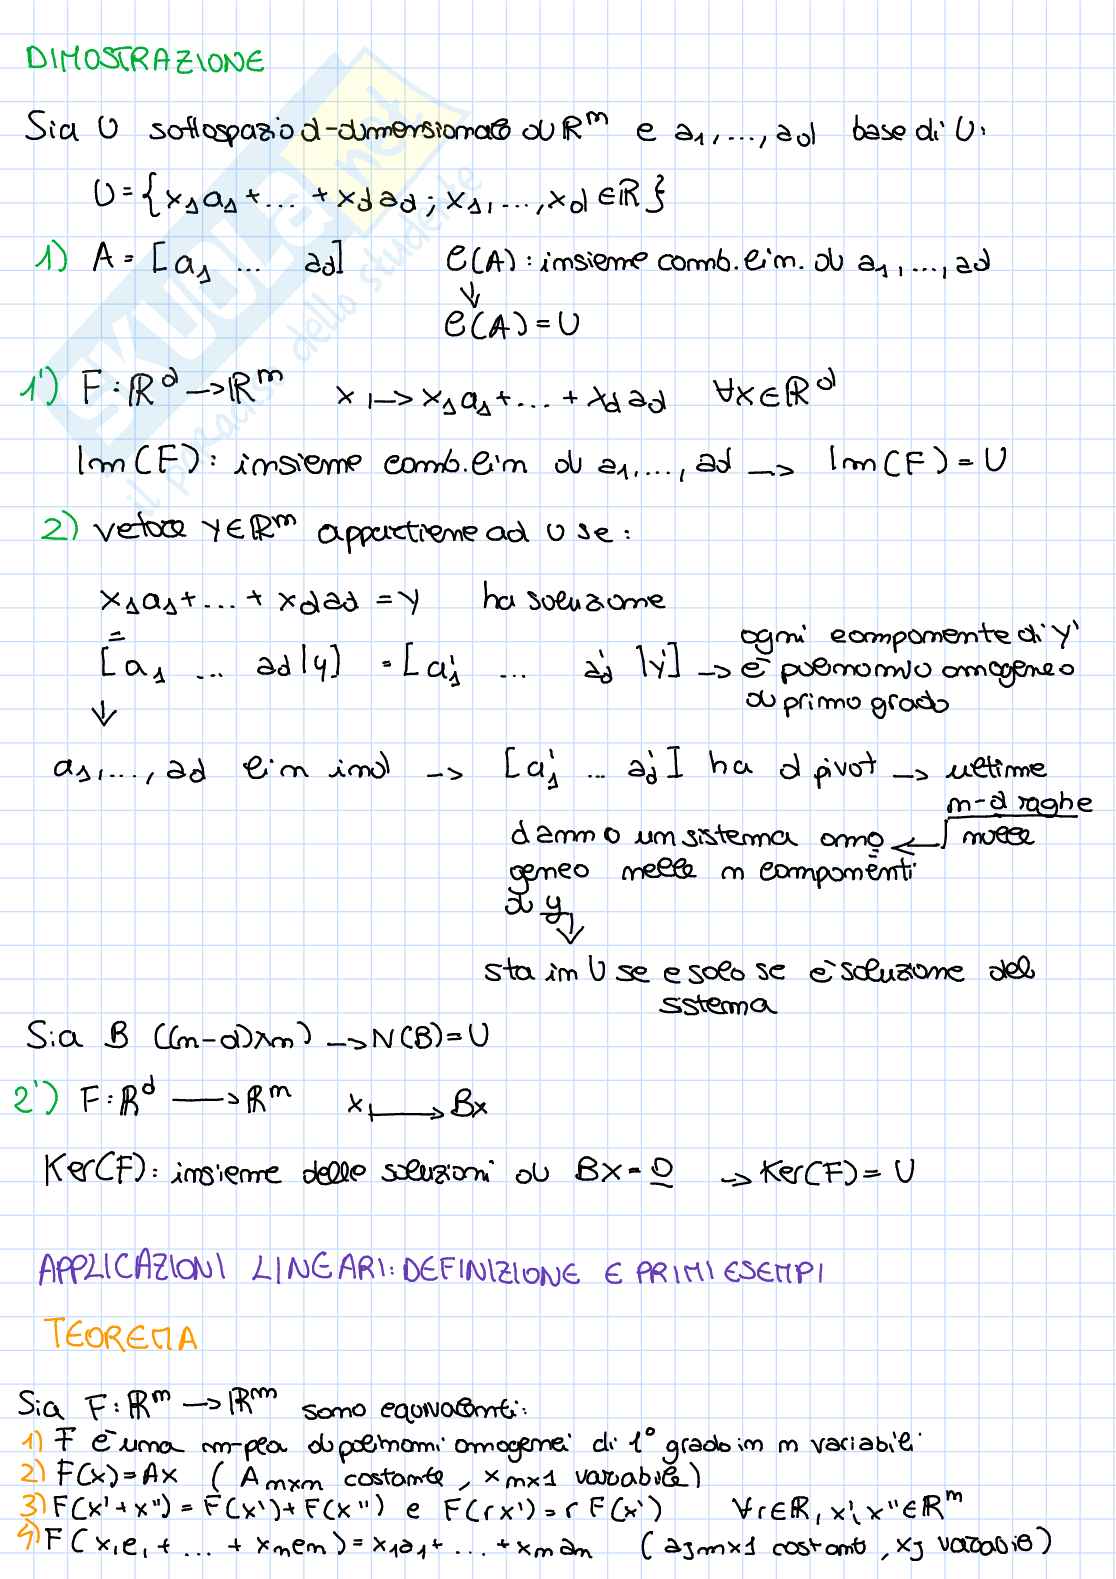 DIMOSTRAZIONE
Sia U sottospazio d-dimensionale di ℝⁿ e a₁,...,ad base di U:
U={x₁a₁+...+xdad; x₁,...,xd∈ℝ}
1) A=[a₁ ... ad] C(A): insieme comb. lin. di a₁,...,ad
↓
C(A)=U
1') F:ℝᵈ→ℝⁿ x↦x₁a₁+...+xdad ∀x∈ℝᵈ
Im(F): insieme comb. lin di a₁,...,ad → Im(F)=U
2) vettore y∈ℝⁿ appartiene ad U se:
x₁a₁+...+xdad=y ha soluzione
=
[a₁ ... ad|y] = [a'₁ ... a'd |y'] → ogni componente di y'
è polinomio omogeneo
di primo grado
↓
a₁,...,ad lin ind → [a'₁ ... a'd] ha d pivot → ultime
n-d righe
nulle
danno un sistema omo ←
geneo nelle n componenti
di y
↓
sta in U se e solo se è soluzione del
sstema
Sia B ((n-d)×n) → N(B)=U
2') F:ℝᵈ → ℝⁿ x ↦ Bx
Ker(F): insieme delle soluzioni di Bx=0 → Ker(F)=U
APPLICAZIONI LINEARI: DEFINIZIONE E PRIMI ESEMPI
TEOREMA
Sia F:ℝⁿ→ℝᵐ sono equivalenti:
1) F è una m-pla di polinomi omogenei di 1° grado in n variabili
2) F(x)=Ax (A m×n costante, x n×1 variabile)
3) F(x'+x")=F(x')+F(x") e F(rx')=rF(x') ∀r∈ℝ, x',x"∈ℝⁿ
4) F(x₁e₁+...+xnen)=x₁a₁+...+xnan (aj m×1 costanti, xj variabili)
SKUOLA.net
il paradiso dello studente